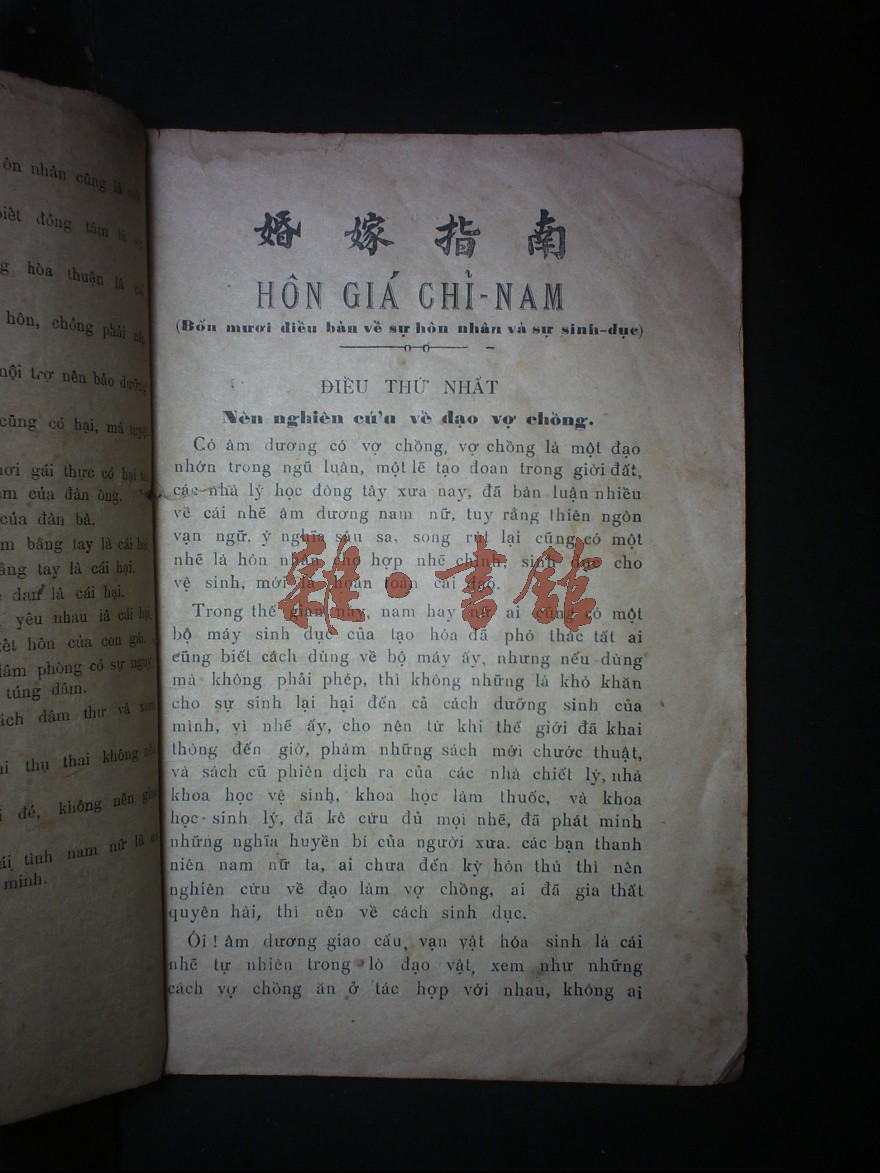 ôn nhân cũng là
biết đồng tâm là
hòa thuận là cái
hôn, chồng phải nên
nội trợ nên bảo dưỡng
cũng có hại, mà tuyệt
gái thực có hại
của đàn ông.
của đàn bà.
bằng tay là cái hại
bằng tay là cái hại.
là cái hại.
yêu nhau là cái hại
kết hôn của con gái.
phòng có sự nguy
túng dâm.
dâm thư và xem
thụ thai không nên
đẻ, không nên
tình nam nữ là
minh.
婚嫁指南
HÔN GIÁ CHỈ-NAM
(Bốn mươi điều bàn về sự hôn nhân và sự sinh-dục)
ĐIỀU THỨ NHẤT
Nên nghiên cứu về đạo vợ chồng.
Có âm dương có vợ chồng, vợ chồng là một đạo
nhớn trong ngũ luân, một lẽ tạo đoan trong giời đất,
các nhà lý học đông tây xưa nay, đã bàn luận nhiều
về cái nhẽ âm dương nam nữ, tuy rằng thiên ngôn
vạn ngữ, ý nghĩa sâu sa, song rút lại cũng có một
nhẽ là hôn nhân cho hợp nhẽ chính, sinh dục cho
vệ sinh, mới là hoàn toàn cái đạo.
Trong thế gian này, nam hay nữ ai cũng có một
bộ máy sinh dục của tạo hóa đã phó thác tất ai
cũng biết cách dùng về bộ máy ấy, nhưng nếu dùng
mà không phải phép, thì không những là khó khăn
cho sự sinh lại hại đến cả cách dưỡng sinh của
mình, vì nhẽ ấy, cho nên từ khi thế giới đã khai
thông đến giờ, phàm những sách mới chước thuật,
và sách cũ phiên dịch ra của các nhà chiết lý, nhà
khoa học vệ sinh, khoa học làm thuốc, và khoa
học sinh lý, đã kê cứu đủ mọi nhẽ, đã phát minh
những nghĩa huyền bí của người xưa. các bạn thanh
niên nam nữ ta, ai chưa đến kỳ hôn thú thì nên
nghiên cứu về đạo làm vợ chồng, ai đã gia thất
quyên hải, thì nên về cách sinh dục.
Ôi ! âm dương giao cấu, vạn vật hóa sinh là cái
nhẽ tự nhiên trong lò đạo vật, xem như những
cách vợ chồng ăn ở tác hợp với nhau, không ai
雜·書館